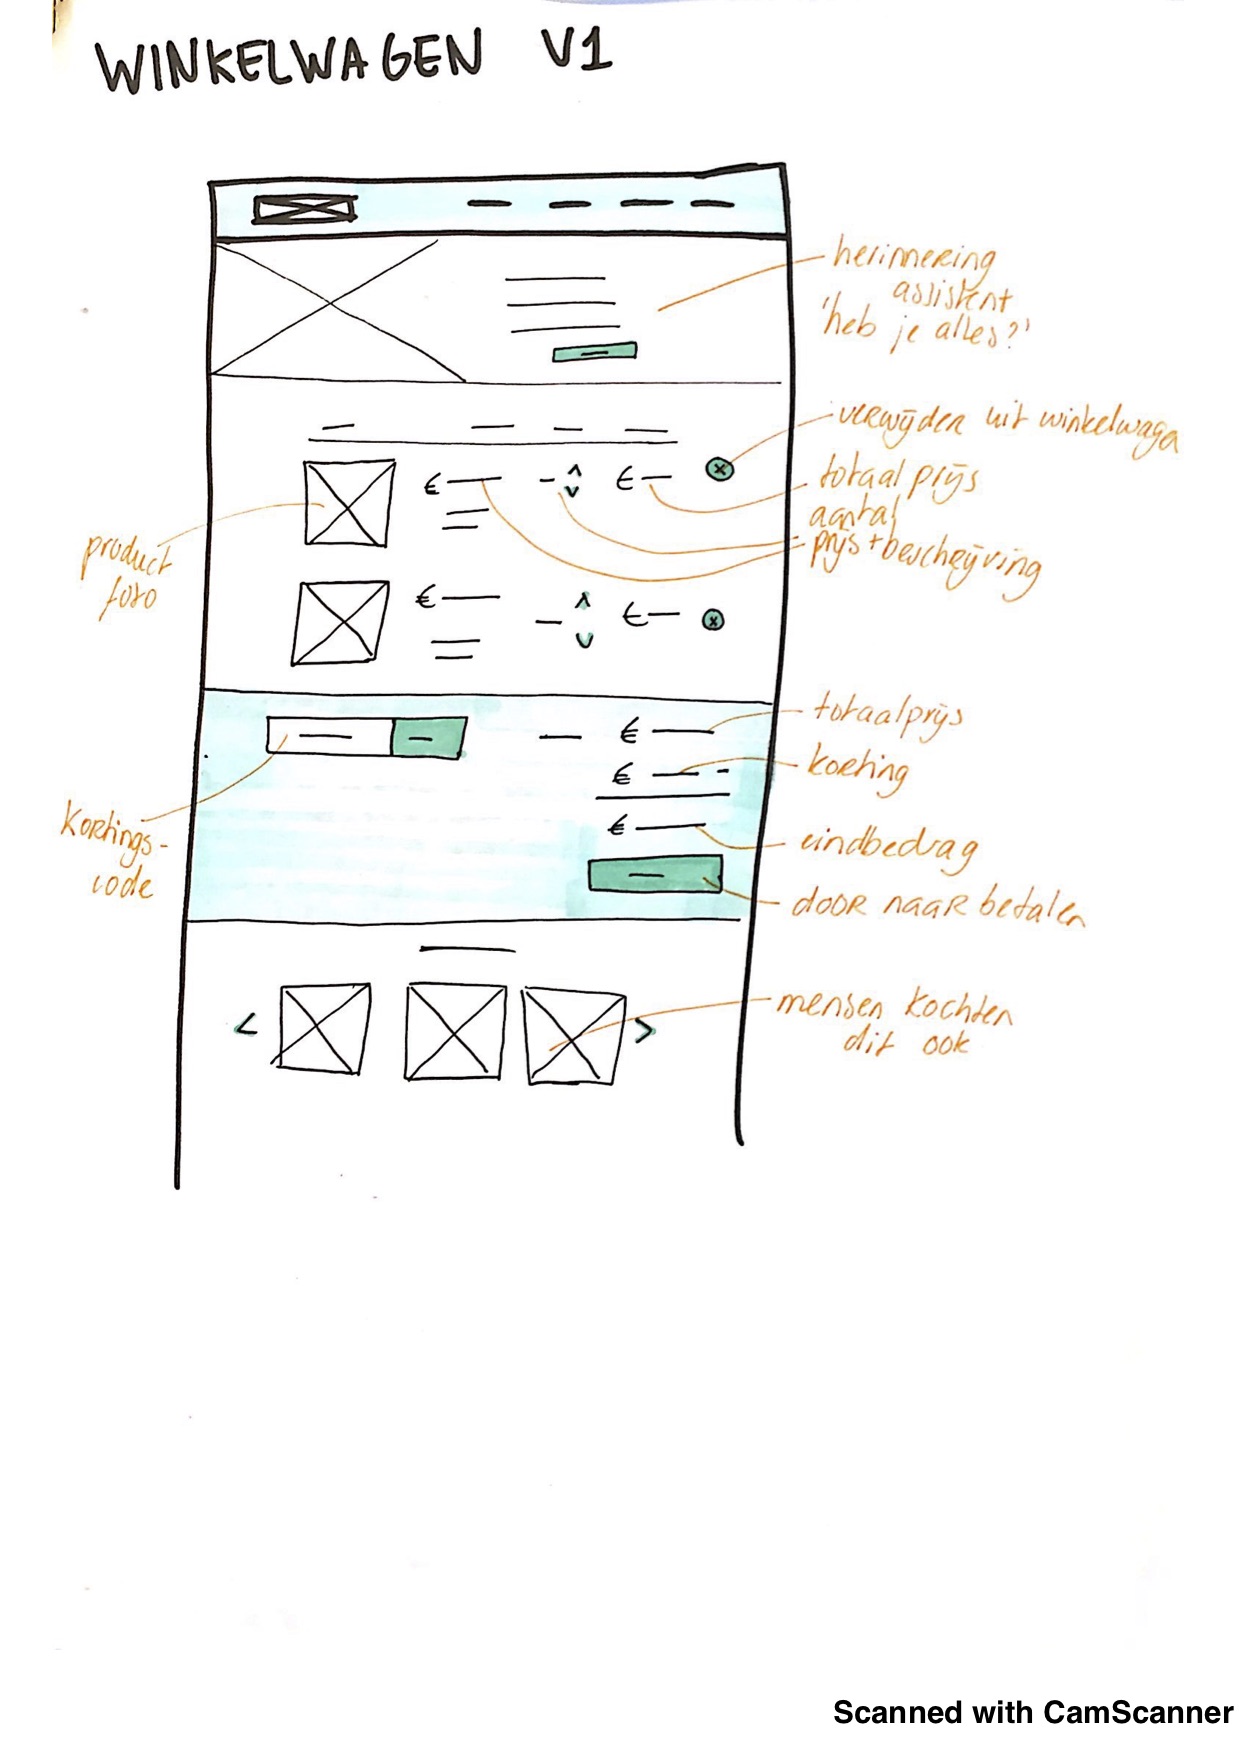 WINKELWAGEN V1
herinnering
assistent
'heb je alles?'
verwijden uit winkelwagn
totaal prijs
aantal
prijs + beschrijving
product
foto
€
€
€
€
totaalprijs
€
korting
€
eindbedrag
€
Kortings-
code
door naar betalen
mensen kochten
dit ook
<
>
Scanned with CamScanner